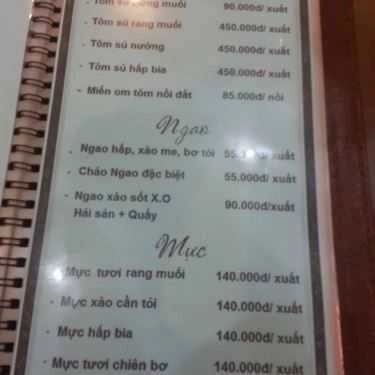 . Tôm sú rang muối 90.000đ/ xuất
. Tôm sú rang muối 450.000đ/ xuất
. Tôm sú nướng 450.000đ/ xuất
- Tôm sú hấp bia 450.000đ/ xuất
- Miến om tôm nồi đất 85.000đ/ nồi
Ngao
. Ngao hấp, xào me, bơ tỏi 55.000đ/ xuất
- Cháo Ngao đặc biệt 55.000đ/ xuất
- Ngao xào sốt X.O 90.000đ/xuất
Hải sản + Quẩy
Mực
Mực tươi rang muối 140.000đ/ xuất
- Mực xào cần tỏi 140.000đ/ xuất
- Mực hấp bia 140.000đ/ xuất
- Mực tươi chiên bơ 140.000đ/ xuất